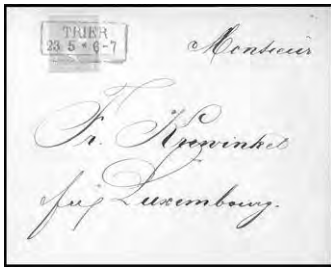 TRIER
23 5 * 6-7
Monsieur
Fr. Krewinkel
Luxembourg.